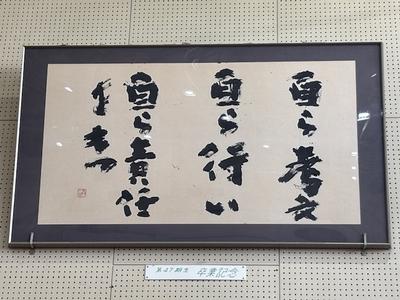 自ら考え
自ら行い
自ら責任
第47期生 卒業記念